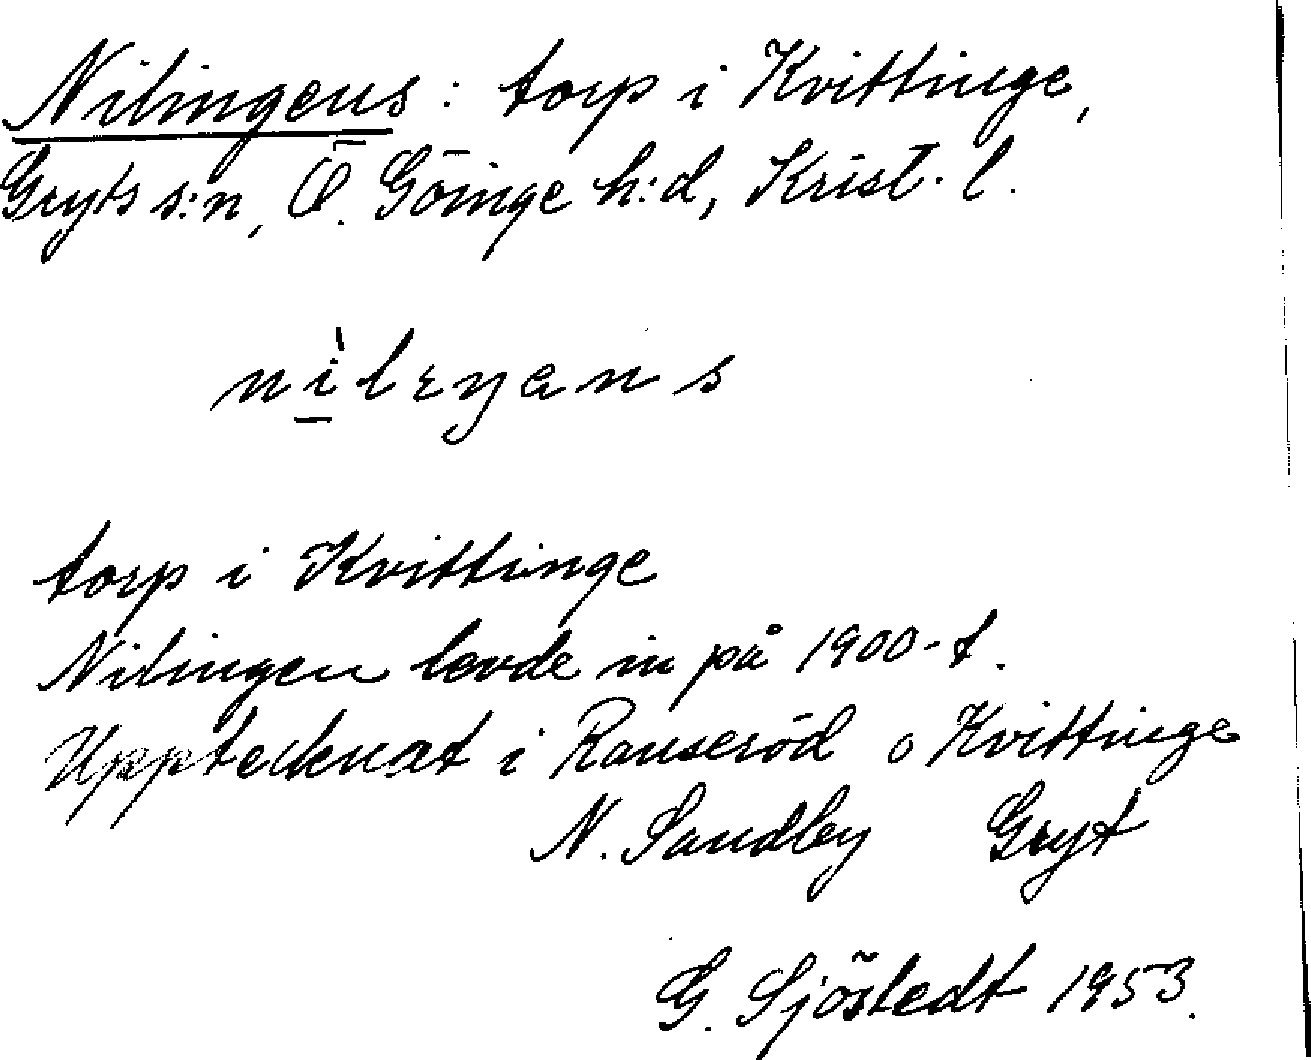 Nilingens: torp i Kvittinge,
Gryts s:n, Ö. Göinge h:d, Krist. l.
torp i Kvittinge
Nilingen levde in på 1900-t.
Upptecknat i Ranseröd o Kvittinge
N. Sandby Gryt
G. Sjöstedt 1953.